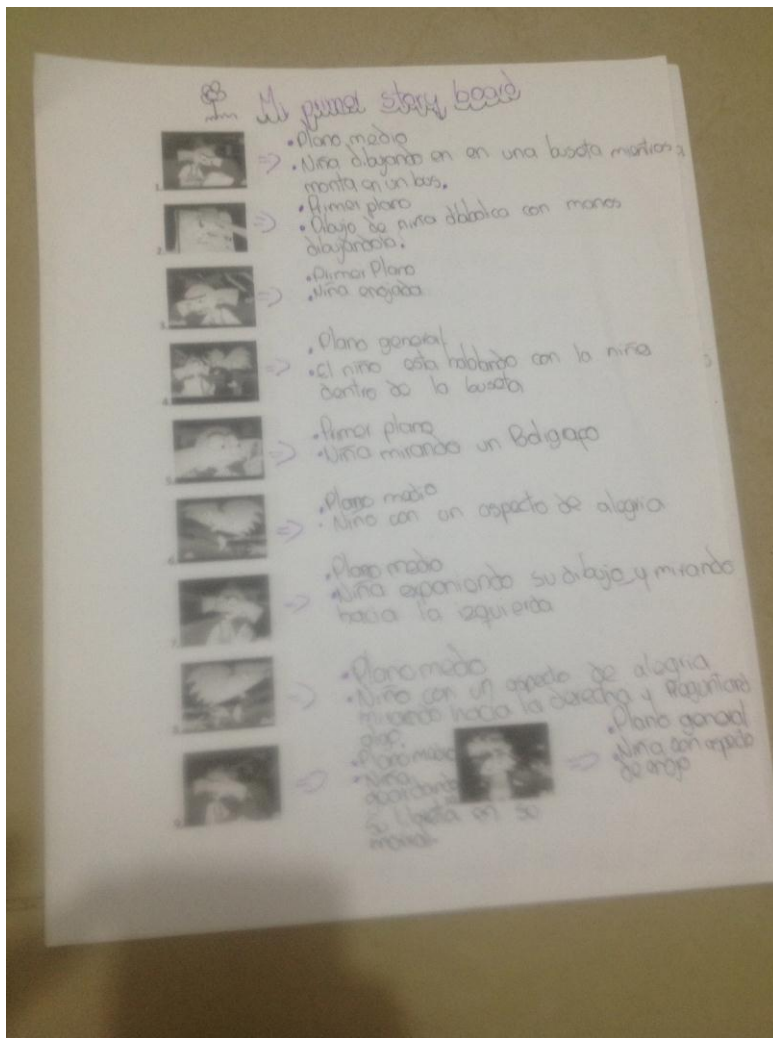 Mi primer story board
1.
• Plano medio
• Niña dibujando en en una buseta mientras
monta en un bus.
2.
• Primer plano
• Dibujo de niña diabolica con manos
dibujandolo.
3.
• Primer Plano
• Niña enojada
4.
• Plano general
• El niño esta hablando con la niña
dentro de la buseta
5.
• Primer plano
• Niña mirando un Boligrafo
6.
• Plano medio
• Niño con un aspecto de alegria
7.
• Plano medio
• Niña
su dibujo y mirando
hacia la izquierda
8.
• Plano medio
• Niño con un aspecto de alegria
mirando hacia la derecha y
algo.
9.
• Plano medio
• Niña
su libreta en su
morral.
• Plano general
• Niña con aspecto
de enojo